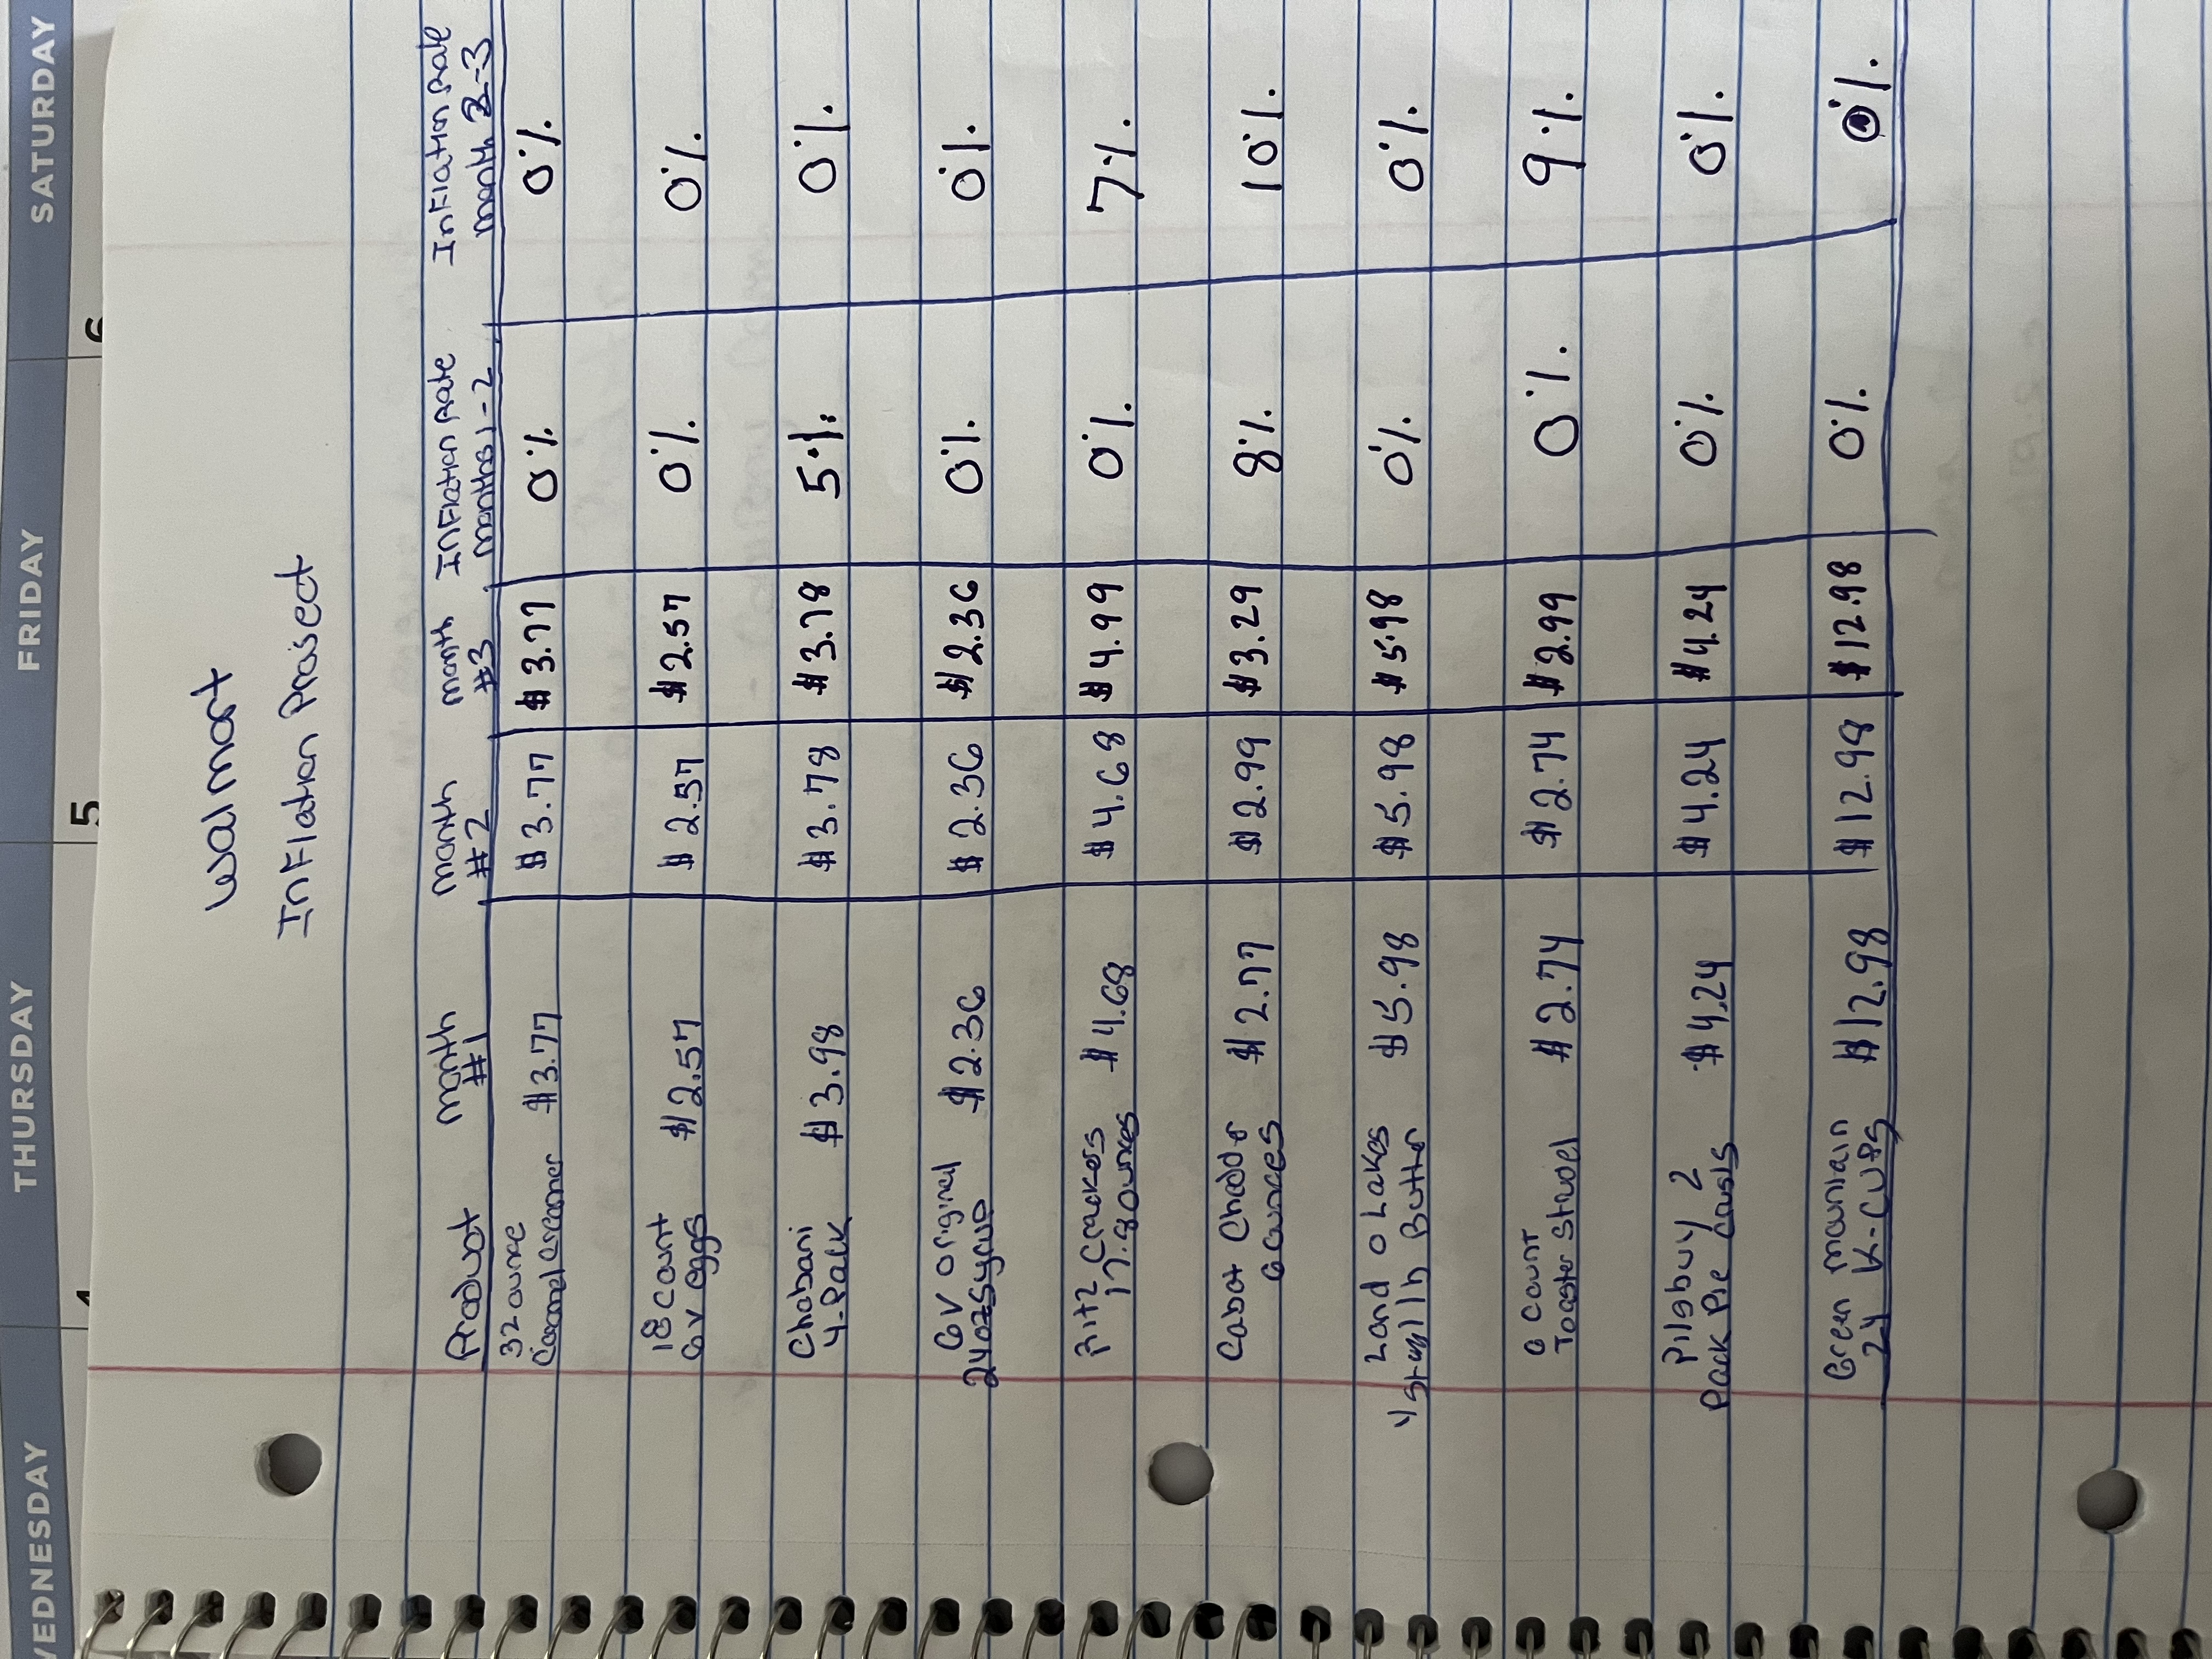 WEDNESDAY THURSDAY FRIDAY SATURDAY
4 5 6
Walmart
Inflation Project
Product month #1 month #2 month #3 Inflation Rate months 1-2 Inflation Rate month 2-3
32 ounce
Caramel creamer $3.77 $3.77 $3.77 0% 0%
18 count
GV eggs $2.57 $2.57 $2.57 0% 0%
Chobani
4-Pack $3.98 $3.78 $3.78 5% 0%
GV Original
24oz syrup $2.36 $2.36 $2.36 0% 0%
Ritz Crackers
17.8 ounces $4.68 $4.68 $4.99 0% 7%
Cabot Cheddar
6 ounces $2.77 $2.99 $3.29 8% 10%
Land O Lakes
4 Stray 1 lb Butter $5.98 $5.98 $5.98 0% 0%
6 Count
Toaster Struel $2.74 $2.74 $2.99 0% 9%
Pilsbury 2
Pack Pie Crusts $4.24 $4.24 $4.24 0% 0%
Green mountain
24 K-Cups $12.98 $12.98 $12.98 0% 0%